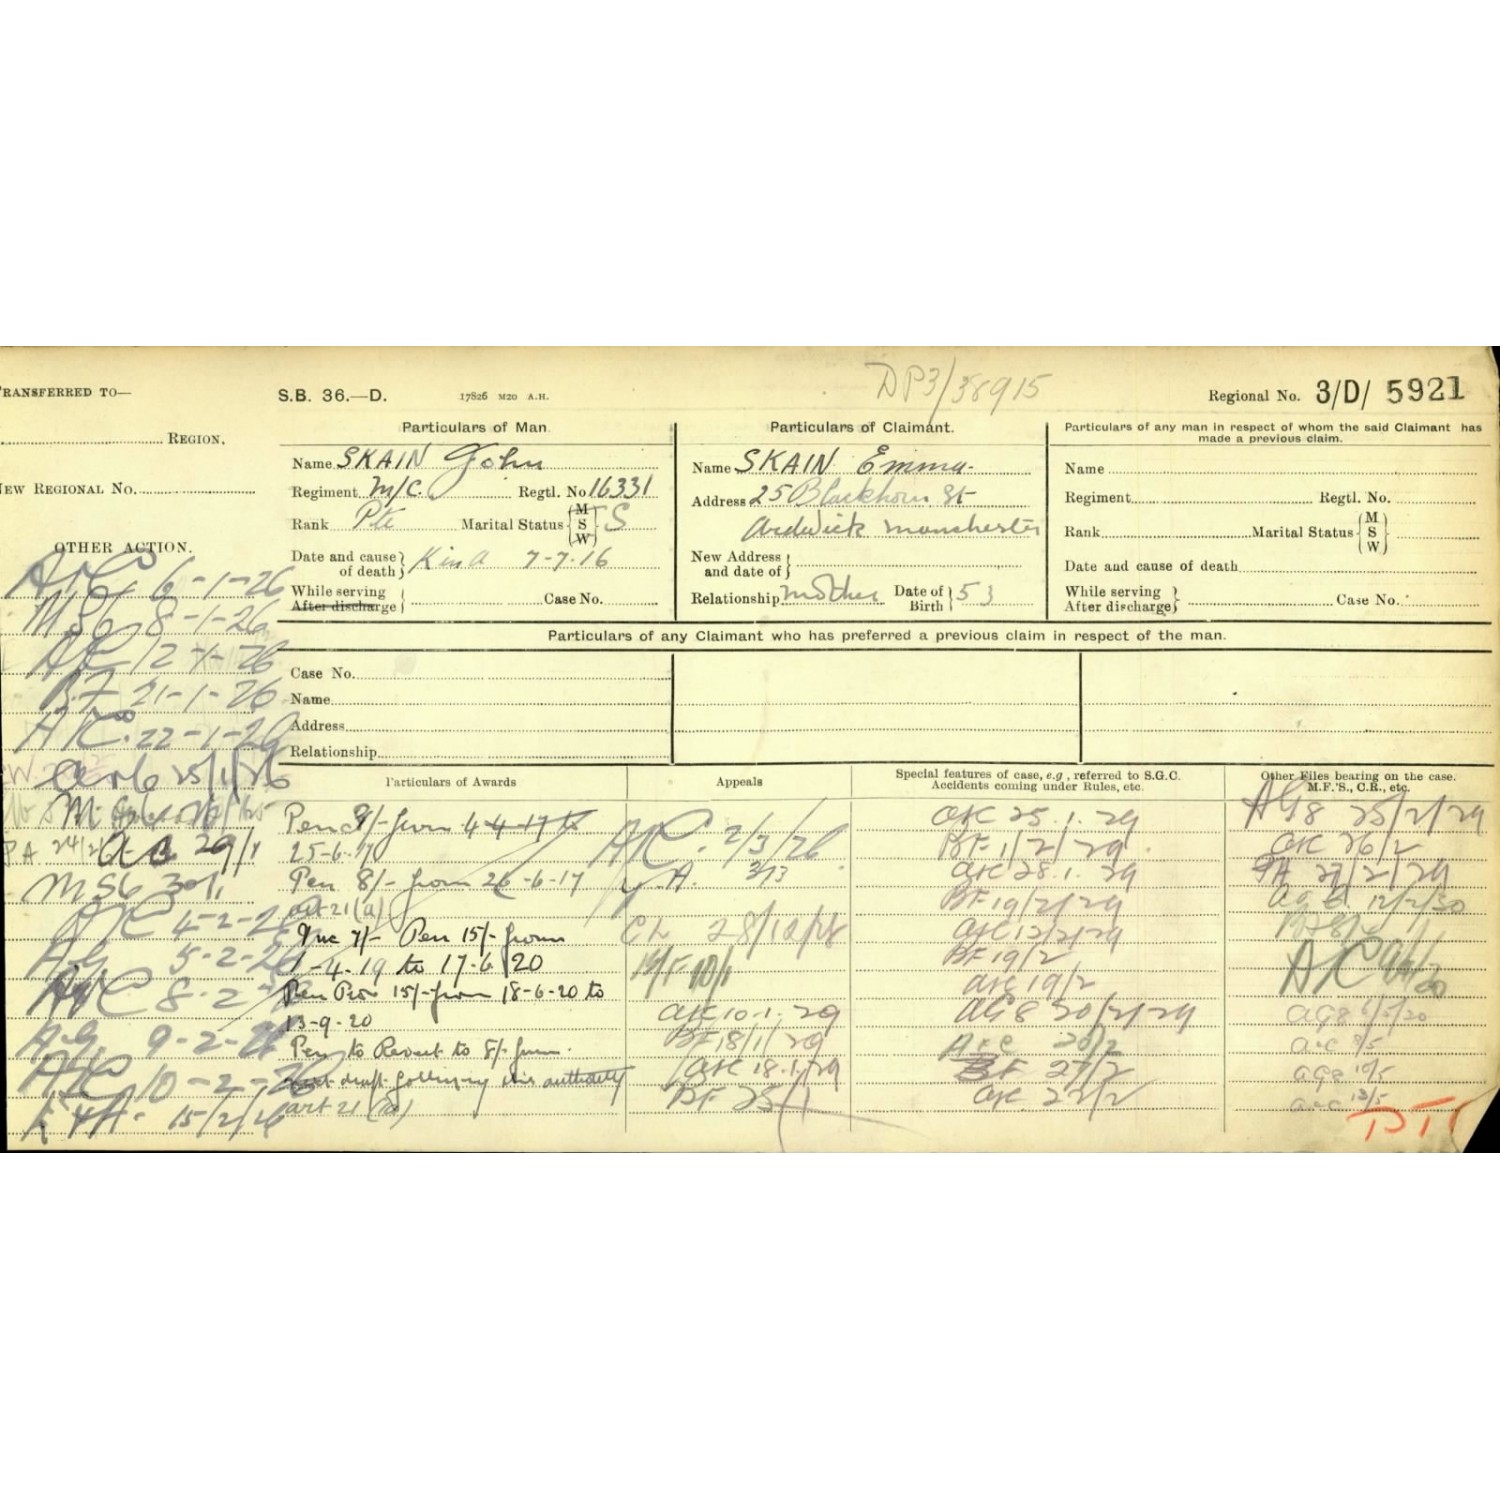 TRANSFERRED TO—
REGION.
NEW REGIONAL No.
OTHER ACTION.
6-1-26
M56 8-1-26
AC 12-1-26
BF 21-1-26
22-1-26
25/1/26
29/1
M56 30/1
AC 4-2-26
AG 5-2-26
8-2-26
A.G. 9-2-26
10-2-26
15/2/26
S.B. 36.—D.
17826 M20 A.H.
DP3/38915
Regional No. 3/D/ 5921
Particulars of Man.
Name SKAIN John
Regiment M/C. Regtl. No 16331
Rank Pte Marital Status { M S W } S
Date and cause of death } K in A 7-7-16
While serving
After discharge } Case No.
Particulars of Claimant.
Name SKAIN Emma.
Address 25 Blackhorn St
Ardwick Manchester
New Address and date of }
Relationship Mother Date of Birth } 53
Particulars of any man in respect of whom the said Claimant has
made a previous claim.
Name
Regiment Regtl. No.
Rank Marital Status { M S W }
Date and cause of death
While serving
After discharge } Case No.
Particulars of any Claimant who has preferred a previous claim in respect of the man.
Case No.
Name
Address
Relationship
Particulars of Awards
Pen 9/- from 4-4-17 to
25-6-17
Pen 8/- from 26-6-17
art 21 (a)
Inc 7/- Pen 15/- from
1-4-19 to 17-6-20
Pen 15/- from 18-6-20 to
13-9-20
Pen to Revert to 8/- from
next draft following this authority
art 21 (a)
Appeals
AC. 2/3/26
A. 3/3
28/12/28
BF 10/1
AC 10.1.29
BF 18/1/29
AC 18.1.29
BF 25/1
Special features of case, e.g., referred to S.G.C.
Accidents coming under Rules, etc.
AC 25.1.29
BF 1/2/29
AC 28.1.29
BF 19/2/29
AC 12/2/29
BF 19/2
AC 19/2
AG8 20/2/29
AC 20/2
BF 27/2
AC 22/2
Other Files bearing on the case.
M.F.'S., C.R., etc.
AG8 25/2/29
AC 26/2
PA 27/2/29
AG 12/2/30
AC
AG8 6/5/30
AC 8/5
AG8 10/5
AC 13/5
PT